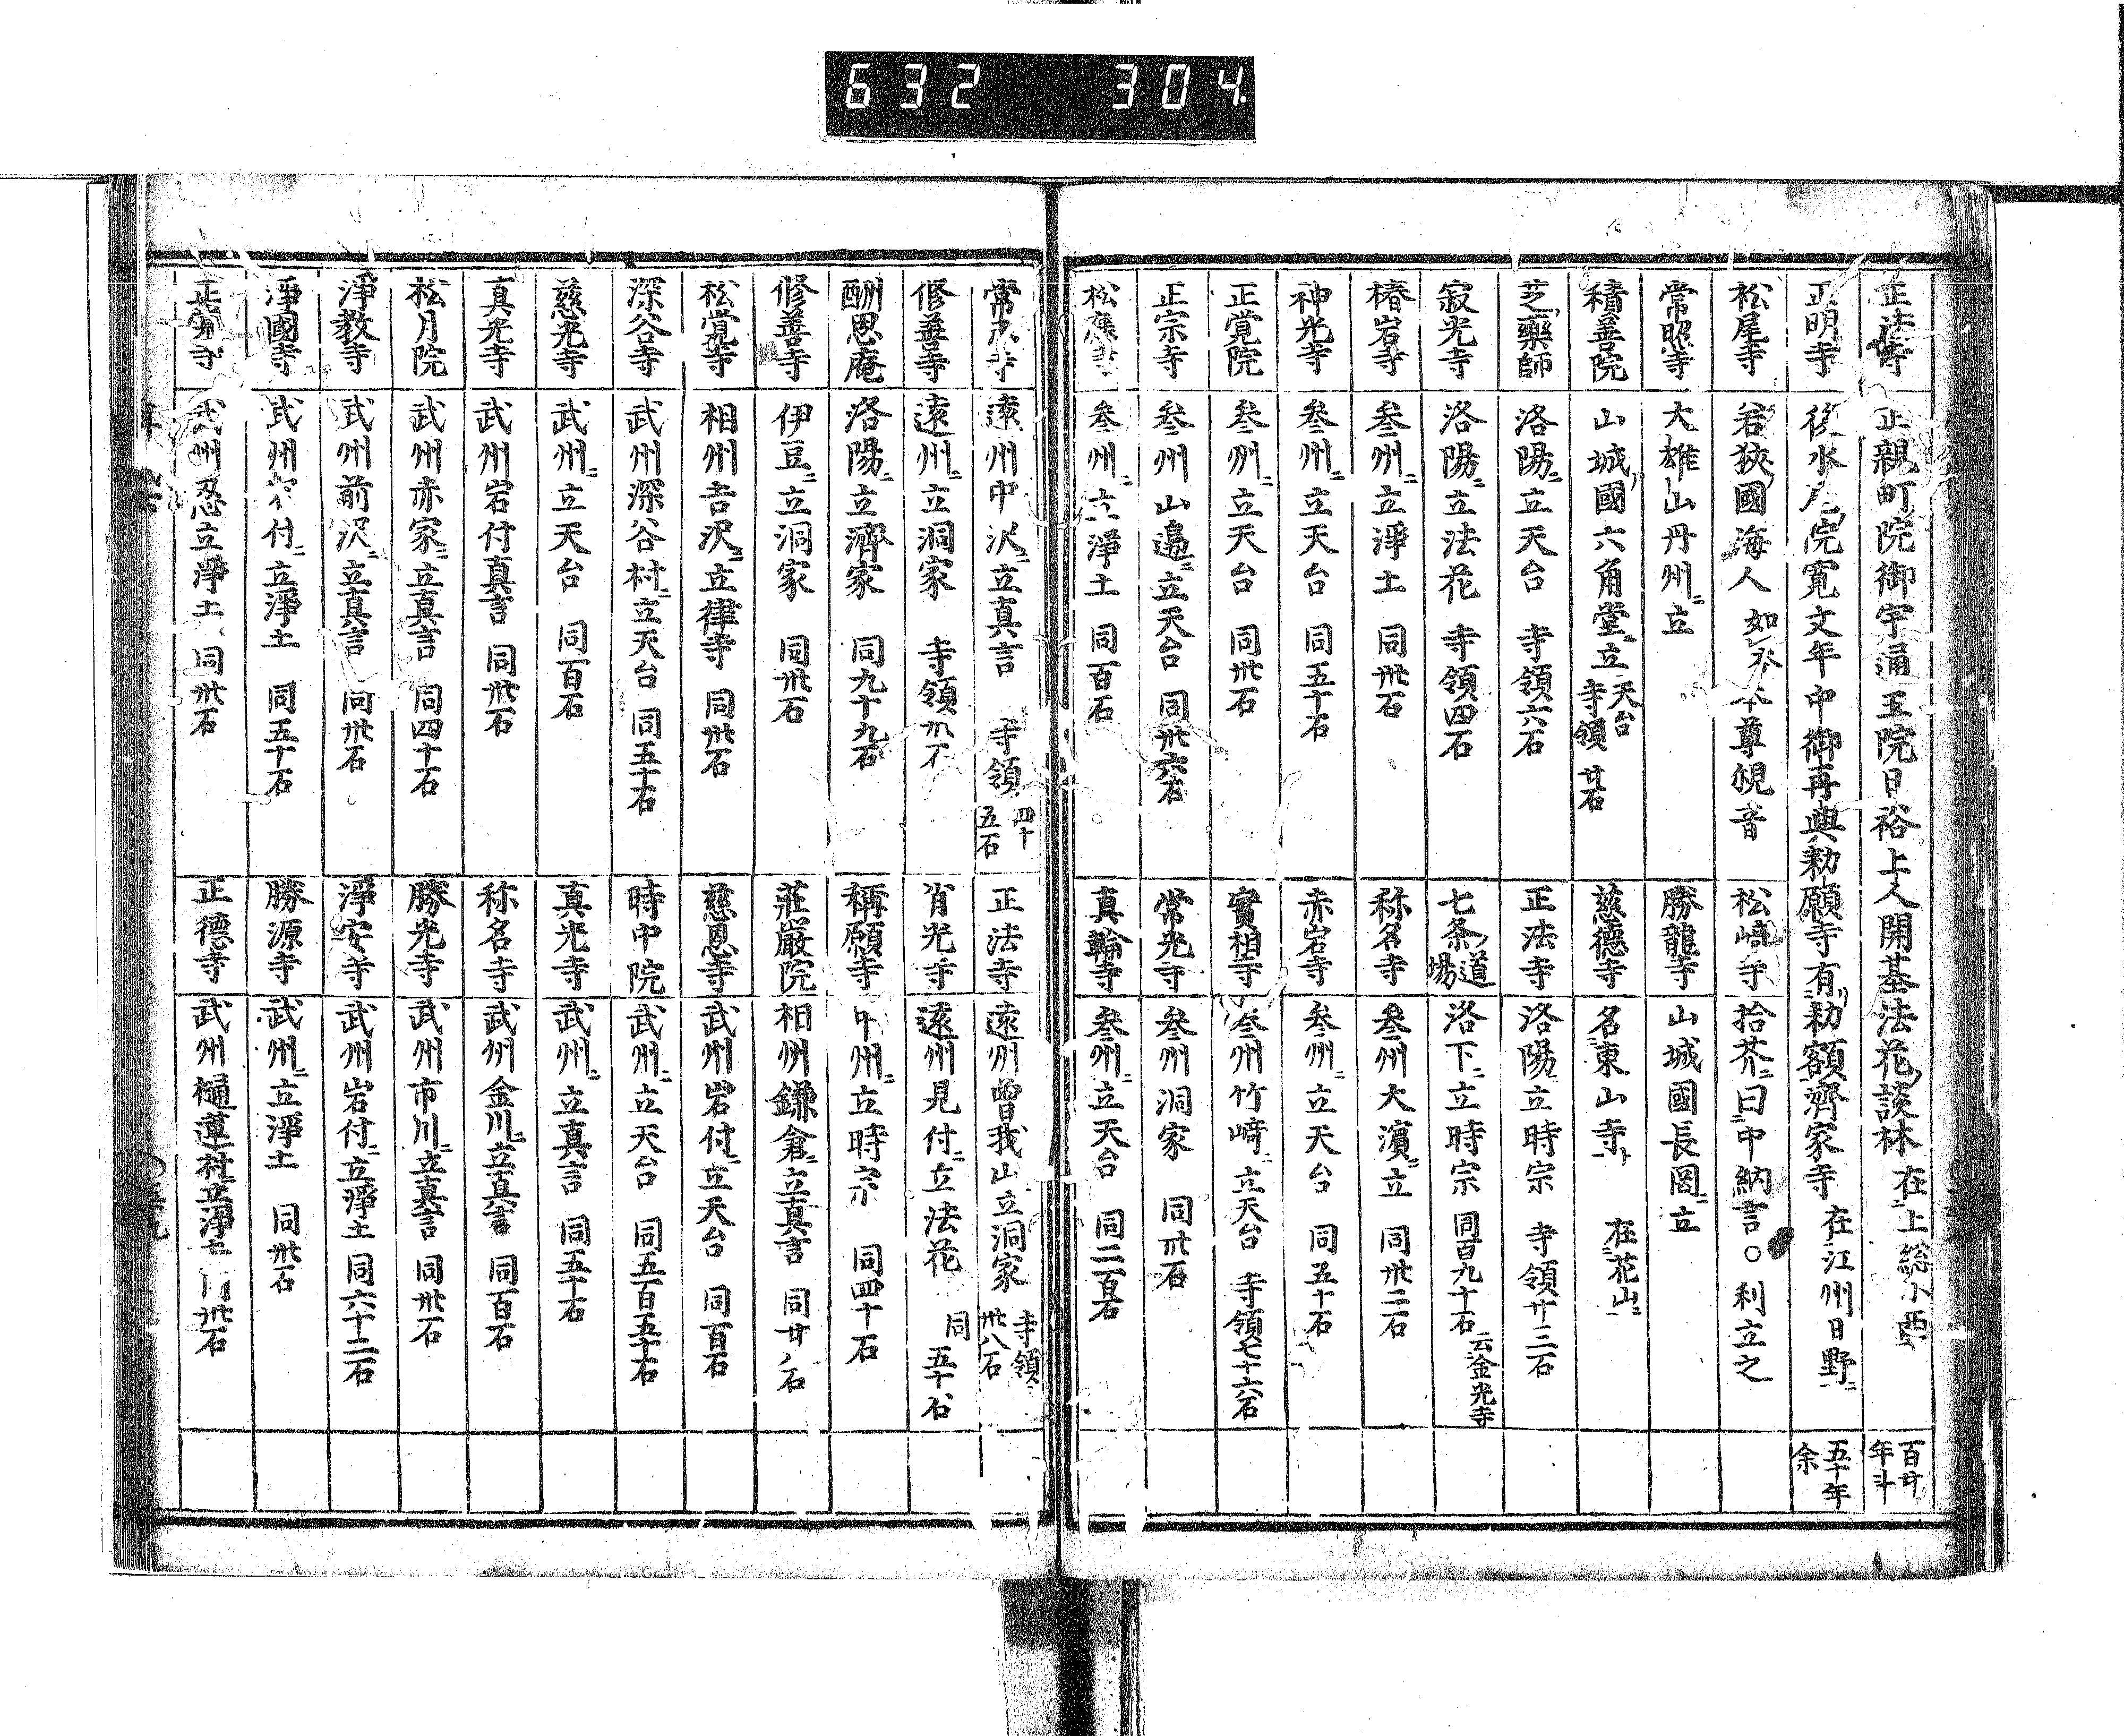 632 304
正法寺 正親町院御宇通王院日裕上人開基法花談林 在上総小西 百廿年斗
正明寺 後水尾院寛文年中御再興勅願寺有勅額濟家寺 在江州日野 五十年余
松尾寺 若狭國海人 本尊観音 松﨑寺 拾芥曰中納言○利立之
常照寺 大雄山丹州立 勝龍寺 山城國長岡立
積善院 山城國六角堂立 天台 寺領廿石 慈德寺 名東山寺 在花山
芝藥師 洛陽立天台 寺領六石 正法寺 洛陽立時宗 寺領廿三石
寂光寺 洛陽立法花 寺領四石 七条道場 洛下立時宗 同百九十石 云金光寺
椿岩寺 叄州立淨土 同卅石 称名寺 叄州大濱立 同卅二石
神光寺 叄州立天台 同五十石 赤岩寺 叄州立天台 同五十石
正覚院 叄州立天台 同卅石 實相寺 叄州竹﨑立天台 寺領七十六石
正宗寺 叄州山邉立天台 同卅六石 常光寺 叄州洞家 同卅石
松應寺 叄州立淨土 同百石 真輪寺 叄州立天台 同二百石
常 寺 遠州中沢立真言 寺領四十五石 正法寺 遠州曽我山立洞家 寺領卅八石
修善寺 遠州立洞家 寺領 肖光寺 遠州見付立法花 同五十八石
酬恩庵 洛陽立濟家 同九十九石 稱願寺 甲州立時宗 同四十石
修善寺 伊豆立洞家 同卅石 莊嚴院 相州鎌倉立真言 同廿八石
松覚寺 相州吉沢立律寺 同卅石 慈恩寺 武州岩付立天台 同百石
深谷寺 武州深谷村立天台 同五十石 時中院 武州立天台 同五百五十石
慈光寺 武州立天台 同百石 真光寺 武州立真言 同五十石
真光寺 武州岩付真言 同卅石 称名寺 武州金川立真言 同百石
松月院 武州赤家立真言 同四十石 勝光寺 武州市川立真言 同卅石
淨教寺 武州前沢立真言 同卅石 淨安寺 武州岩付立淨土 同六十二石
淨國寺 武州岩付立淨土 同五十石 勝源寺 武州立淨土 同卅石
正覚寺 武州忍立淨土 同卅石 正德寺 武州樋遣社立淨土 同卅石